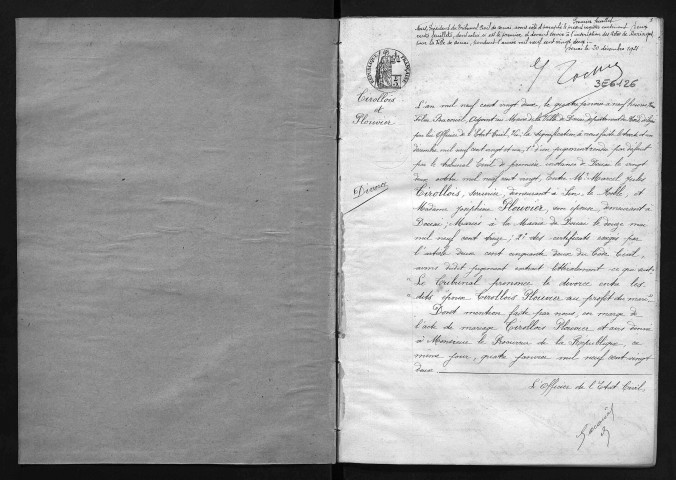 Premier feuillet
Nous, Président du Tribunal Civil de Douai, avons coté et paraphé le présent registre contenant
cents feuillets, pour celui-ci est le premier, et devant servir à l'inscription des actes de Mariages,
pour la Ville de Douai, pendant l'année mil neuf cent vingt deux.
Douai le 30 décembre 1921
3E6126
RÉPUBLIQUE FRANÇAISE
Cirollois
et
Plouvier
Divorce
L'an mil neuf cent vingt deux, le quatre janvier à neuf heures, Nous
Adjoint au Maire de la Ville de Douai département du Nord
par les Officier de l'Etat Civil, Vu: la signification à nous faite le trente et un
décembre mil neuf cent vingt et un, 1° d'un jugement rendu par défaut
par le tribunal Civil de première instance de Douai le vingt
deux octobre mil neuf cent vingt, Entre Mr Marcel Jules
Cirollois, serrurier, demeurant à Sin le Noble, et
Madame Joséphine Plouvier, son épouse, demeurant à
Douai; Mariés à la Mairie de Douai le douze mai
mil neuf cent treize; 2° des certificats exigés par
l'article deux cent cinquante deux du Code Civil,
avons dudit jugement extrait littéralement ce qui suit:
"Le Tribunal prononce le divorce entre les
"dits époux Cirollois Plouvier au profit du mari."
Dont mention faite par nous, en marge de
l'acte de mariage Cirollois Plouvier et avis donné
à Monsieur le Procureur de la République, ce
même jour, quatre janvier mil neuf cent vingt
deux
L'Officier de l'Etat Civil,